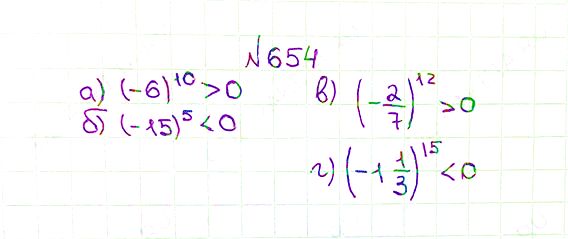 №654
а) (-6)^10 > 0
б) (-15)^5 < 0
в) (-2/7)^12 > 0
г) (-1 1/3)^15 < 0